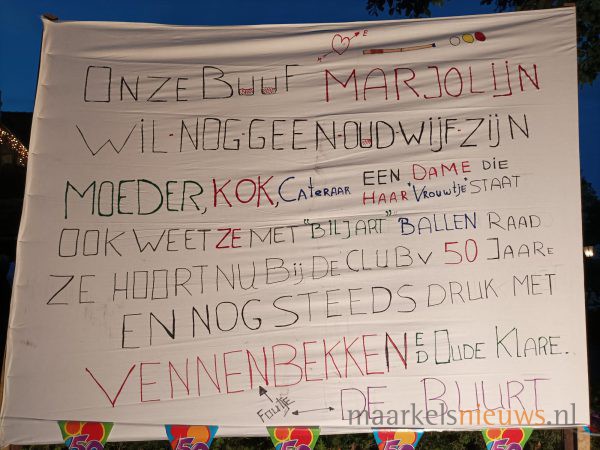 H E
ONZE BUUF MARJOLIJN
WIL·NOG·GEEN·OUD WIJF·ZIJN
MOEDER, KOK, CATERAAR EEN DAME DIE
HAAR "VROUWTJE" STAAT
OOK WEET ZE MET "BILJART" BALLEN RAAD
ZE HOORT NU BIJ DE CLUB V 50 JAARE
EN NOG STEEDS DRUK MET
VENNENBEKKEN ED OUDE KLARE.
FOUTJE DE BUURT
maarkelsnieuws.nl
50 50 50 50 50